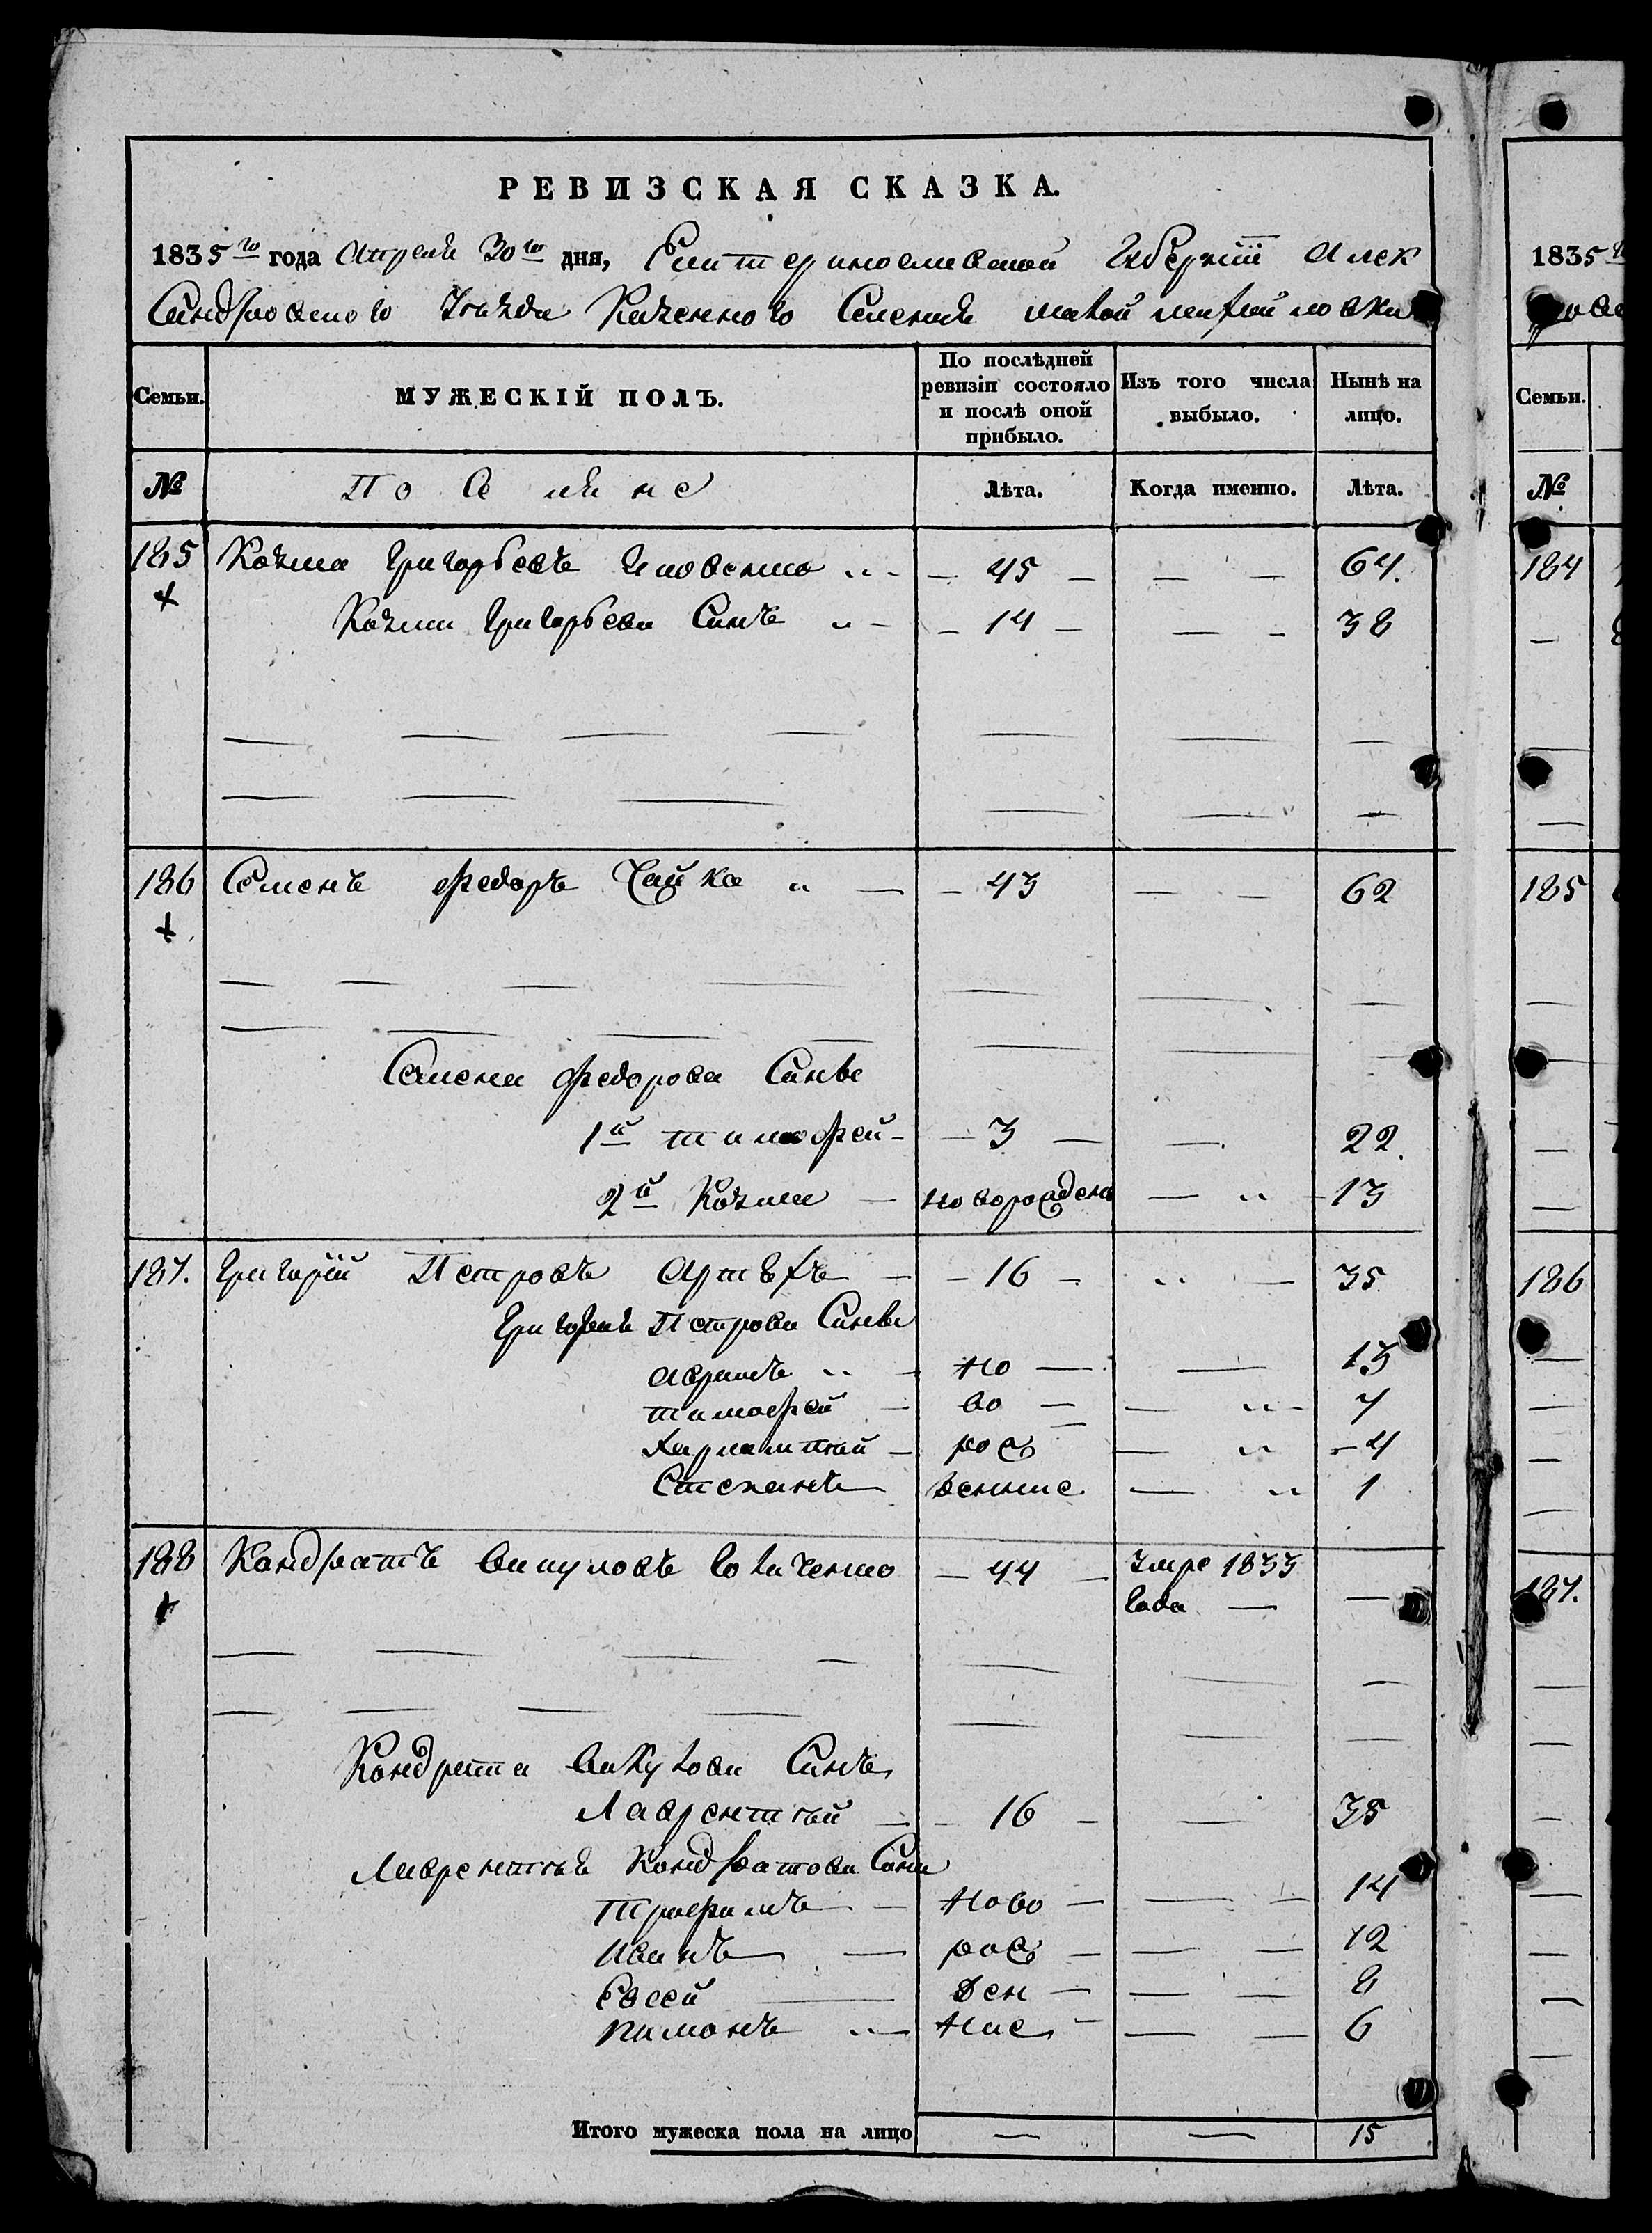 РЕВИЗСКАЯ СКАЗКА.
1835го года Апреля 30го дня, Екатеринославской Губернии Алек
Сандровского Уезда Казенного Селения
Семьи. МУЖЕСКІЙ ПОЛЪ. По послѣдней ревизіи состояло и послѣ оной прибыло. Изъ того числа выбыло. Нынѣ на лицо.
№ Лѣта. Когда именно. Лѣта.
185 Козма Григорьевъ — 45 — — — 64.
+ Козми Григорьева Синъ — 14 — — — 38
186 Семенъ Федоръ Чайка — — 43 — — 62
+
Семена Федорова Синве
1й тимофей — — 3 — — 22.
2й Козма — новорожден — 13
187. Григорій Петровъ — 16 — — 35
Григория Петрова Синве
но — — 13
тимофей — во — — 7
рож — — 4
Степанъ денние — 1
188 Кандратъ Викуловъ — 44 — умре 1833 —
+ года —
Кандрата Викулова Синъ
Лаврентий — 16 — — 35
Лаврентия Кондратова Сини
Трофимъ — Ново — — — 14
Иванъ — рож — — — 12
Евсей — ден — — — 8
пимонъ — ние — — — 6
Итого мужеска пола на лицо — — 15
1835
Семьи.
№
184
—
185
186
187.